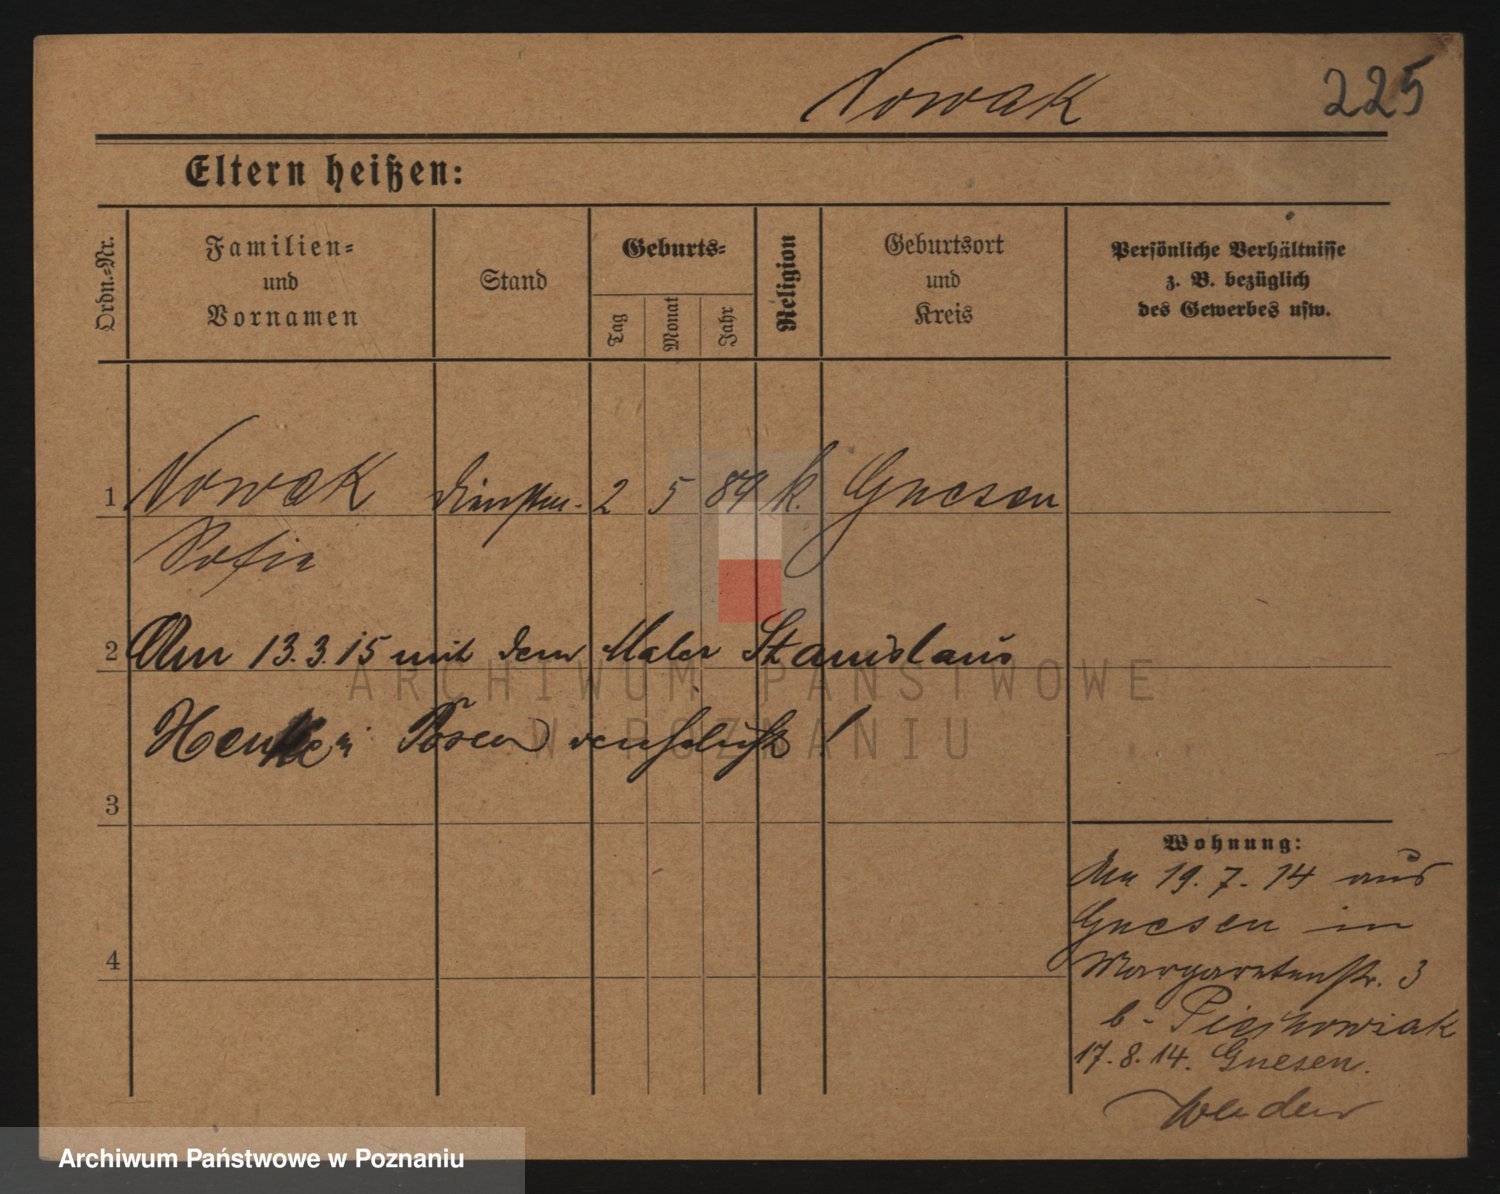 Nowak
225
Eltern heißen:
Ordn.-Nr.
Familien-
und
Vornamen
Stand
Geburts-
Tag
Monat
Jahr
Religion
Geburtsort
und
Kreis
Persönliche Verhältnisse
z. B. bezüglich
des Gewerbes usw.
1 Nowak 2 5 89 k. Gnesen
Sofie
2 Am 13.3.15 mit dem Maler Stanislaus
Posen
3
4
Wohnung:
Am 19.7.14 aus
Gnesen in
Margaretenstr. 3
b-
17.8.14. Gnesen.
ARCHIWUM PAŃSTWOWE
W POZNANIU
Archiwum Państwowe w Poznaniu